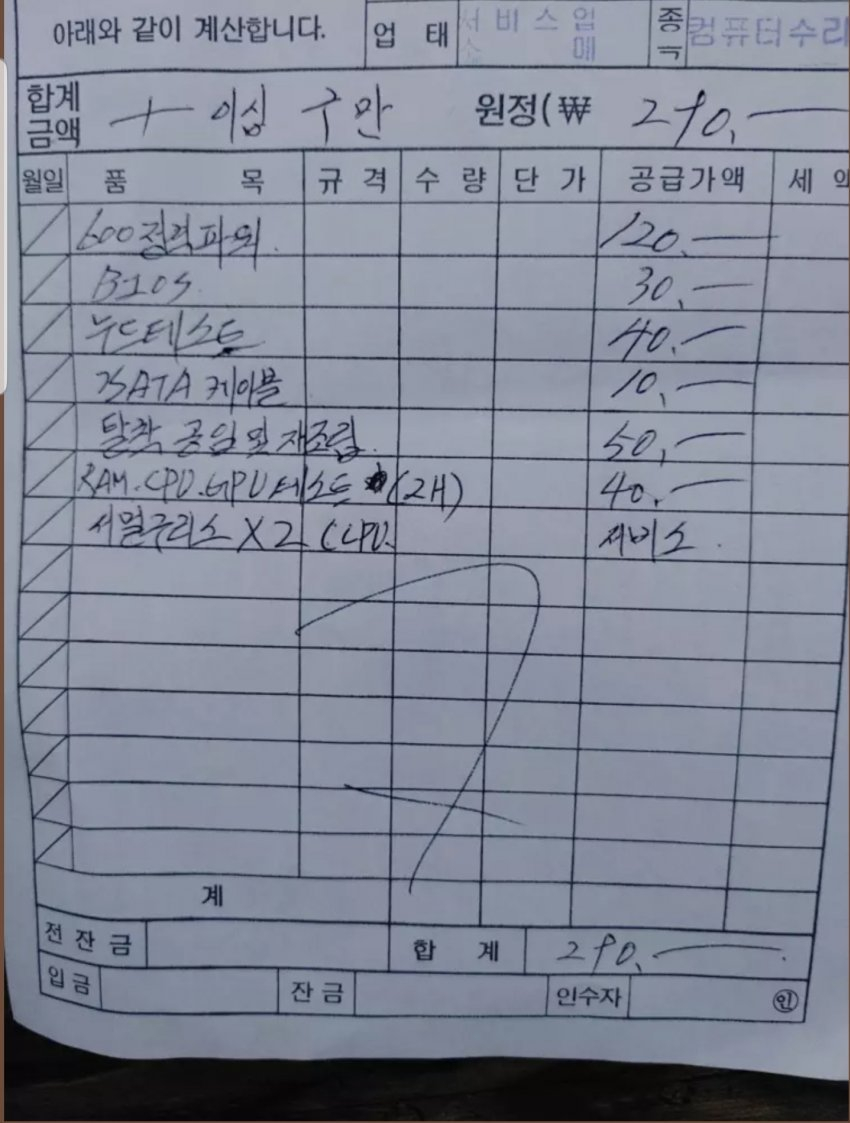 아래와 같이 계산합니다. 업 태 서비스업 소 매 종 컴퓨터수리
합계금액 이십구만 원정(₩ 290,
월일 품 목 규 격 수 량 단 가 공급가액 세 액
600정력파워. 120,
BIOS 30,
누드테스트 40,
SATA 케이블 10,
탈착 공임 및 재조립. 50,
RAM.CPU.GPU테스트 (2H) 40.
서멀구리스 X2 (CPU. 서비스.
계
전잔금 합 계 290.
입금 잔금 인수자 ㊞